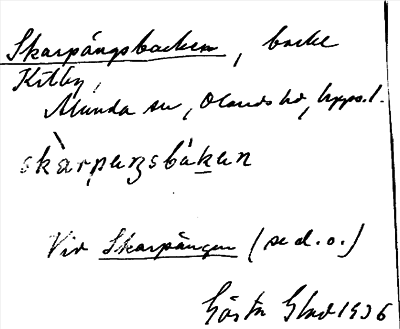 Skarpängsbacken, backe
Kilby,
Alunda sn, Olands hd, Upps. l.
skàrpeŋsbáken
Vid Skarpängen (se d. o.)
Gösta Glad 1936